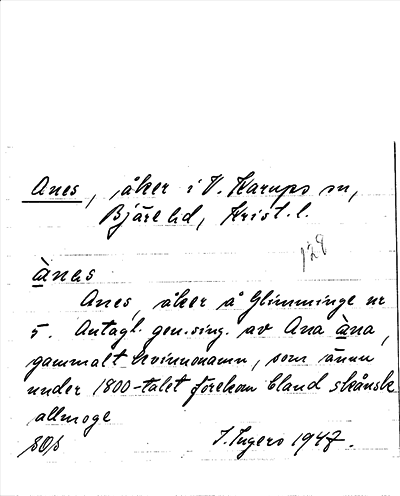 Anes, åker i V. Karups sn,
Bjäre hd, Krist. l.
128
ànas
Anes, åker å Glimminge nr
5. Antagl. gen. sing. av Ana àna,
gammalt kvinnonamn, som ännu
under 1800-talet förekom bland skånsk
allmoge
I. Ingers 1947.